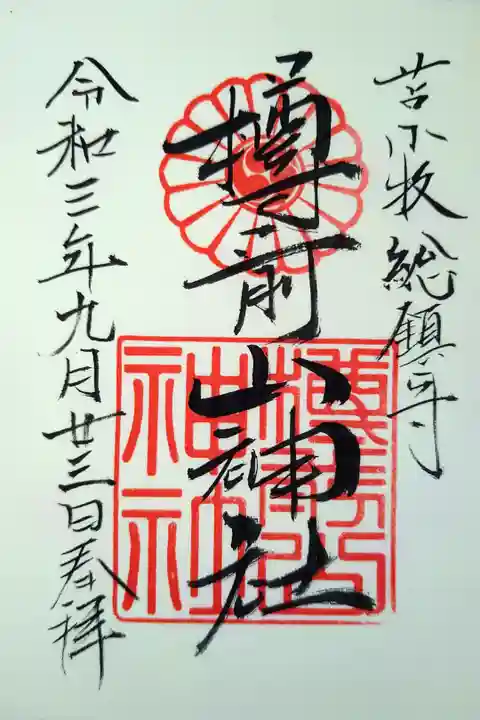 苫小牧総鎮守
樽前山神社
樽前山
神社
令和三年九月廿三日奉拝